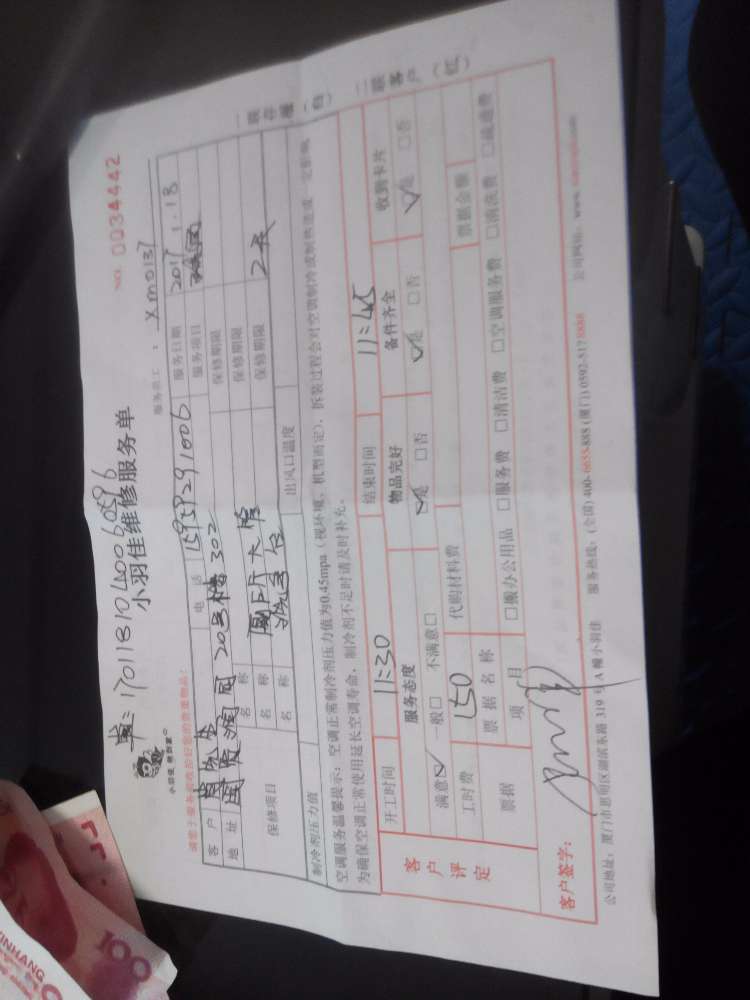 单:1701181040060596
小羽佳维修服务单
NO. 0034442
小羽佳
服务员工: Xm0137
客户 电话 15959291006 服务日期 2017.1.18
地址 国贸润园 20号楼302 服务项目
保修项目 名称 保修期限
名称 厕所大管 保修期限
名称 洗手台 保修期限 2天
制冷剂压力值 出风口温度
空调服务温馨提示:空调正常制冷剂压力值为0.45mpa(视环境、机型而定),拆装过程会对空调制冷或制热造成一定影响
为确保空调正常使用延长空调寿命,制冷剂不足时请及时补充。
一联存根(白)
二联客户(红)
客户评定
开工时间 11:30 结束时间 11:45
服务态度 物品完好 备件齐全 收到卡片
满意☑ 一般□ 不满意□ ☑是 □否 ☑是 □否 ☑是 □否
工时费 150 代购材料费
票据 票据名称 票据金额
项目 □搬办公用品 □服务费 □清洁费 □空调服务费 □清洗费 □疏通费
客户签字:
公司地址:厦门市思明区湖滨东路 319 号 A 幢小羽佳 服务热线:(全国) 400-6655-885 (厦门) 0592-5178888 公司网站:www.
100